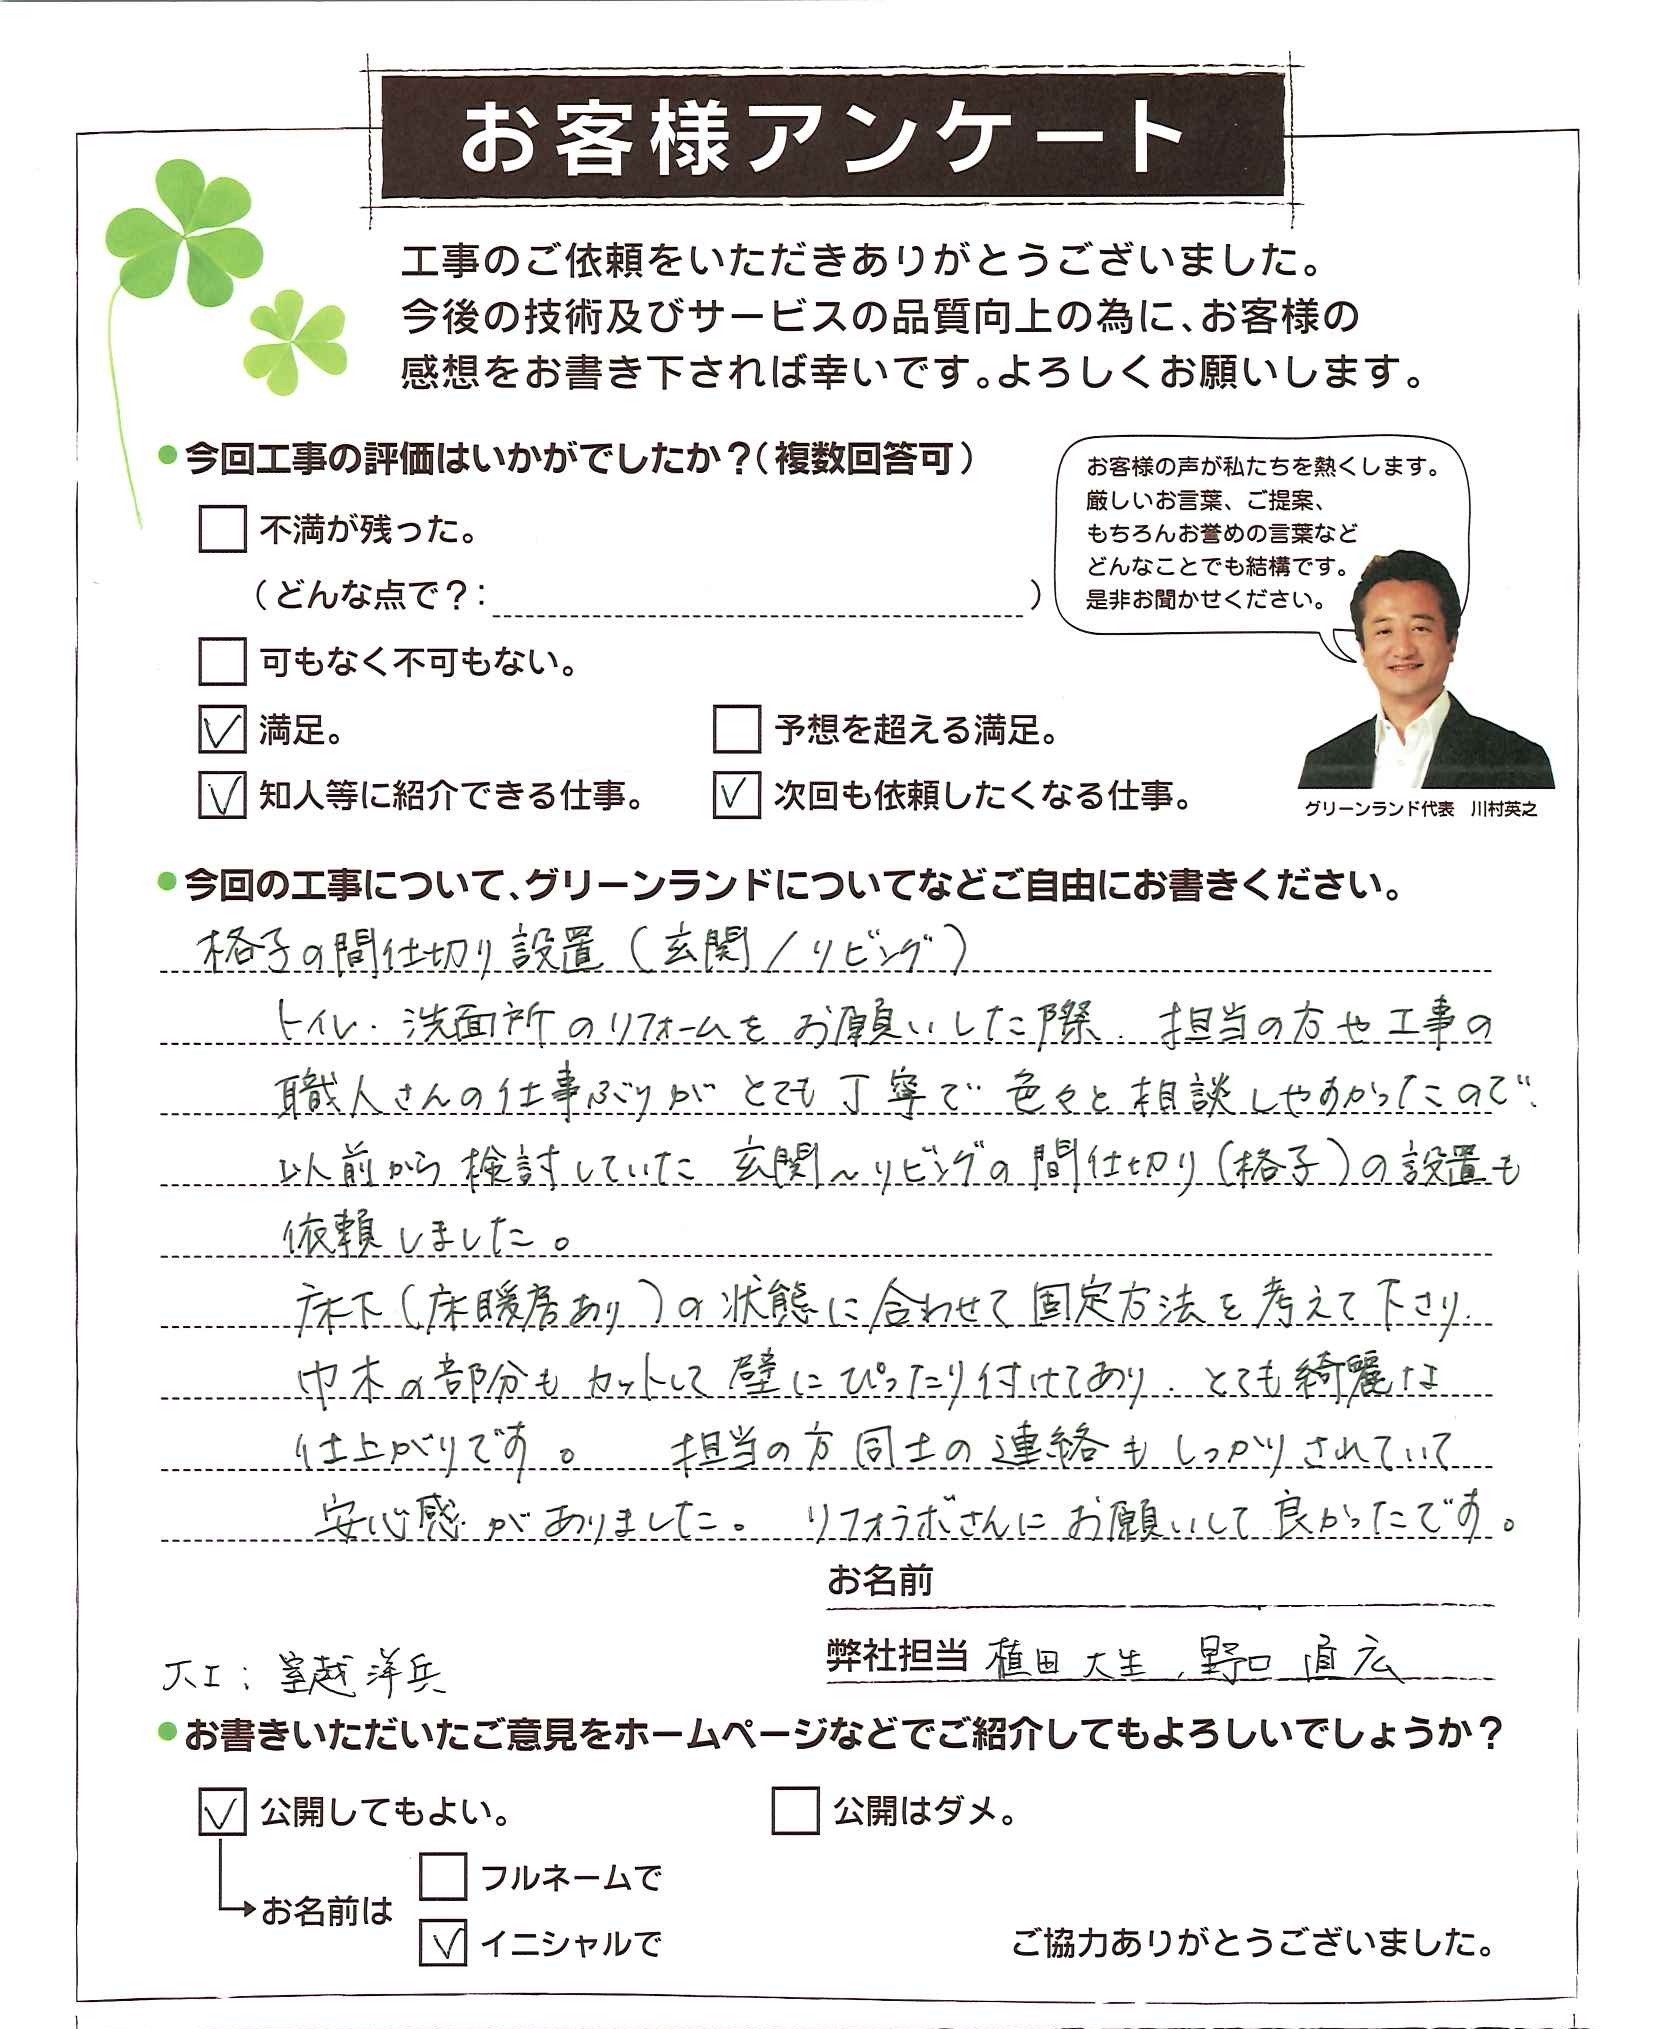 お客様アンケート
工事のご依頼をいただきありがとうございました。
今後の技術及びサービスの品質向上の為に、お客様の
感想をお書き下されば幸いです。よろしくお願いします。
今回工事の評価はいかがでしたか？（複数回答可）
不満が残った。
（どんな点で？：　）
可もなく不可もない。
満足。
予想を超える満足。
知人等に紹介できる仕事。
次回も依頼したくなる仕事。
お客様の声が私たちを熱くします。
厳しいお言葉、ご提案、
もちろんお誉めの言葉など
どんなことでも結構です。
是非お聞かせください。
グリーンランド代表　川村英之
今回の工事について、グリーンランドについてなどご自由にお書きください。
格子の間仕切り設置（玄関／リビング）
トイレ・洗面所のリフォームをお願いした際、担当の方や工事の
職人さんの仕事ぶりがとても丁寧で色々と相談しやすかったので、
以前から検討していた玄関～リビングの間仕切り（格子）の設置も
依頼しました。
床下（床暖居あり）の状態に合わせて固定方法を考えて下さり、
巾木の部分もカットして壁にぴったり付けてあり、とても綺麗な
仕上がりです。　担当の方同士の連絡もしっかりされていて
安心感がありました。リフォラボさんにお願いして良かったです。
お名前
弊社担当 植田大生、野口直広
大工：室越洋兵
お書きいただいたご意見をホームページなどでご紹介してもよろしいでしょうか？
公開してもよい。
公開はダメ。
お名前は
フルネームで
イニシャルで
ご協力ありがとうございました。